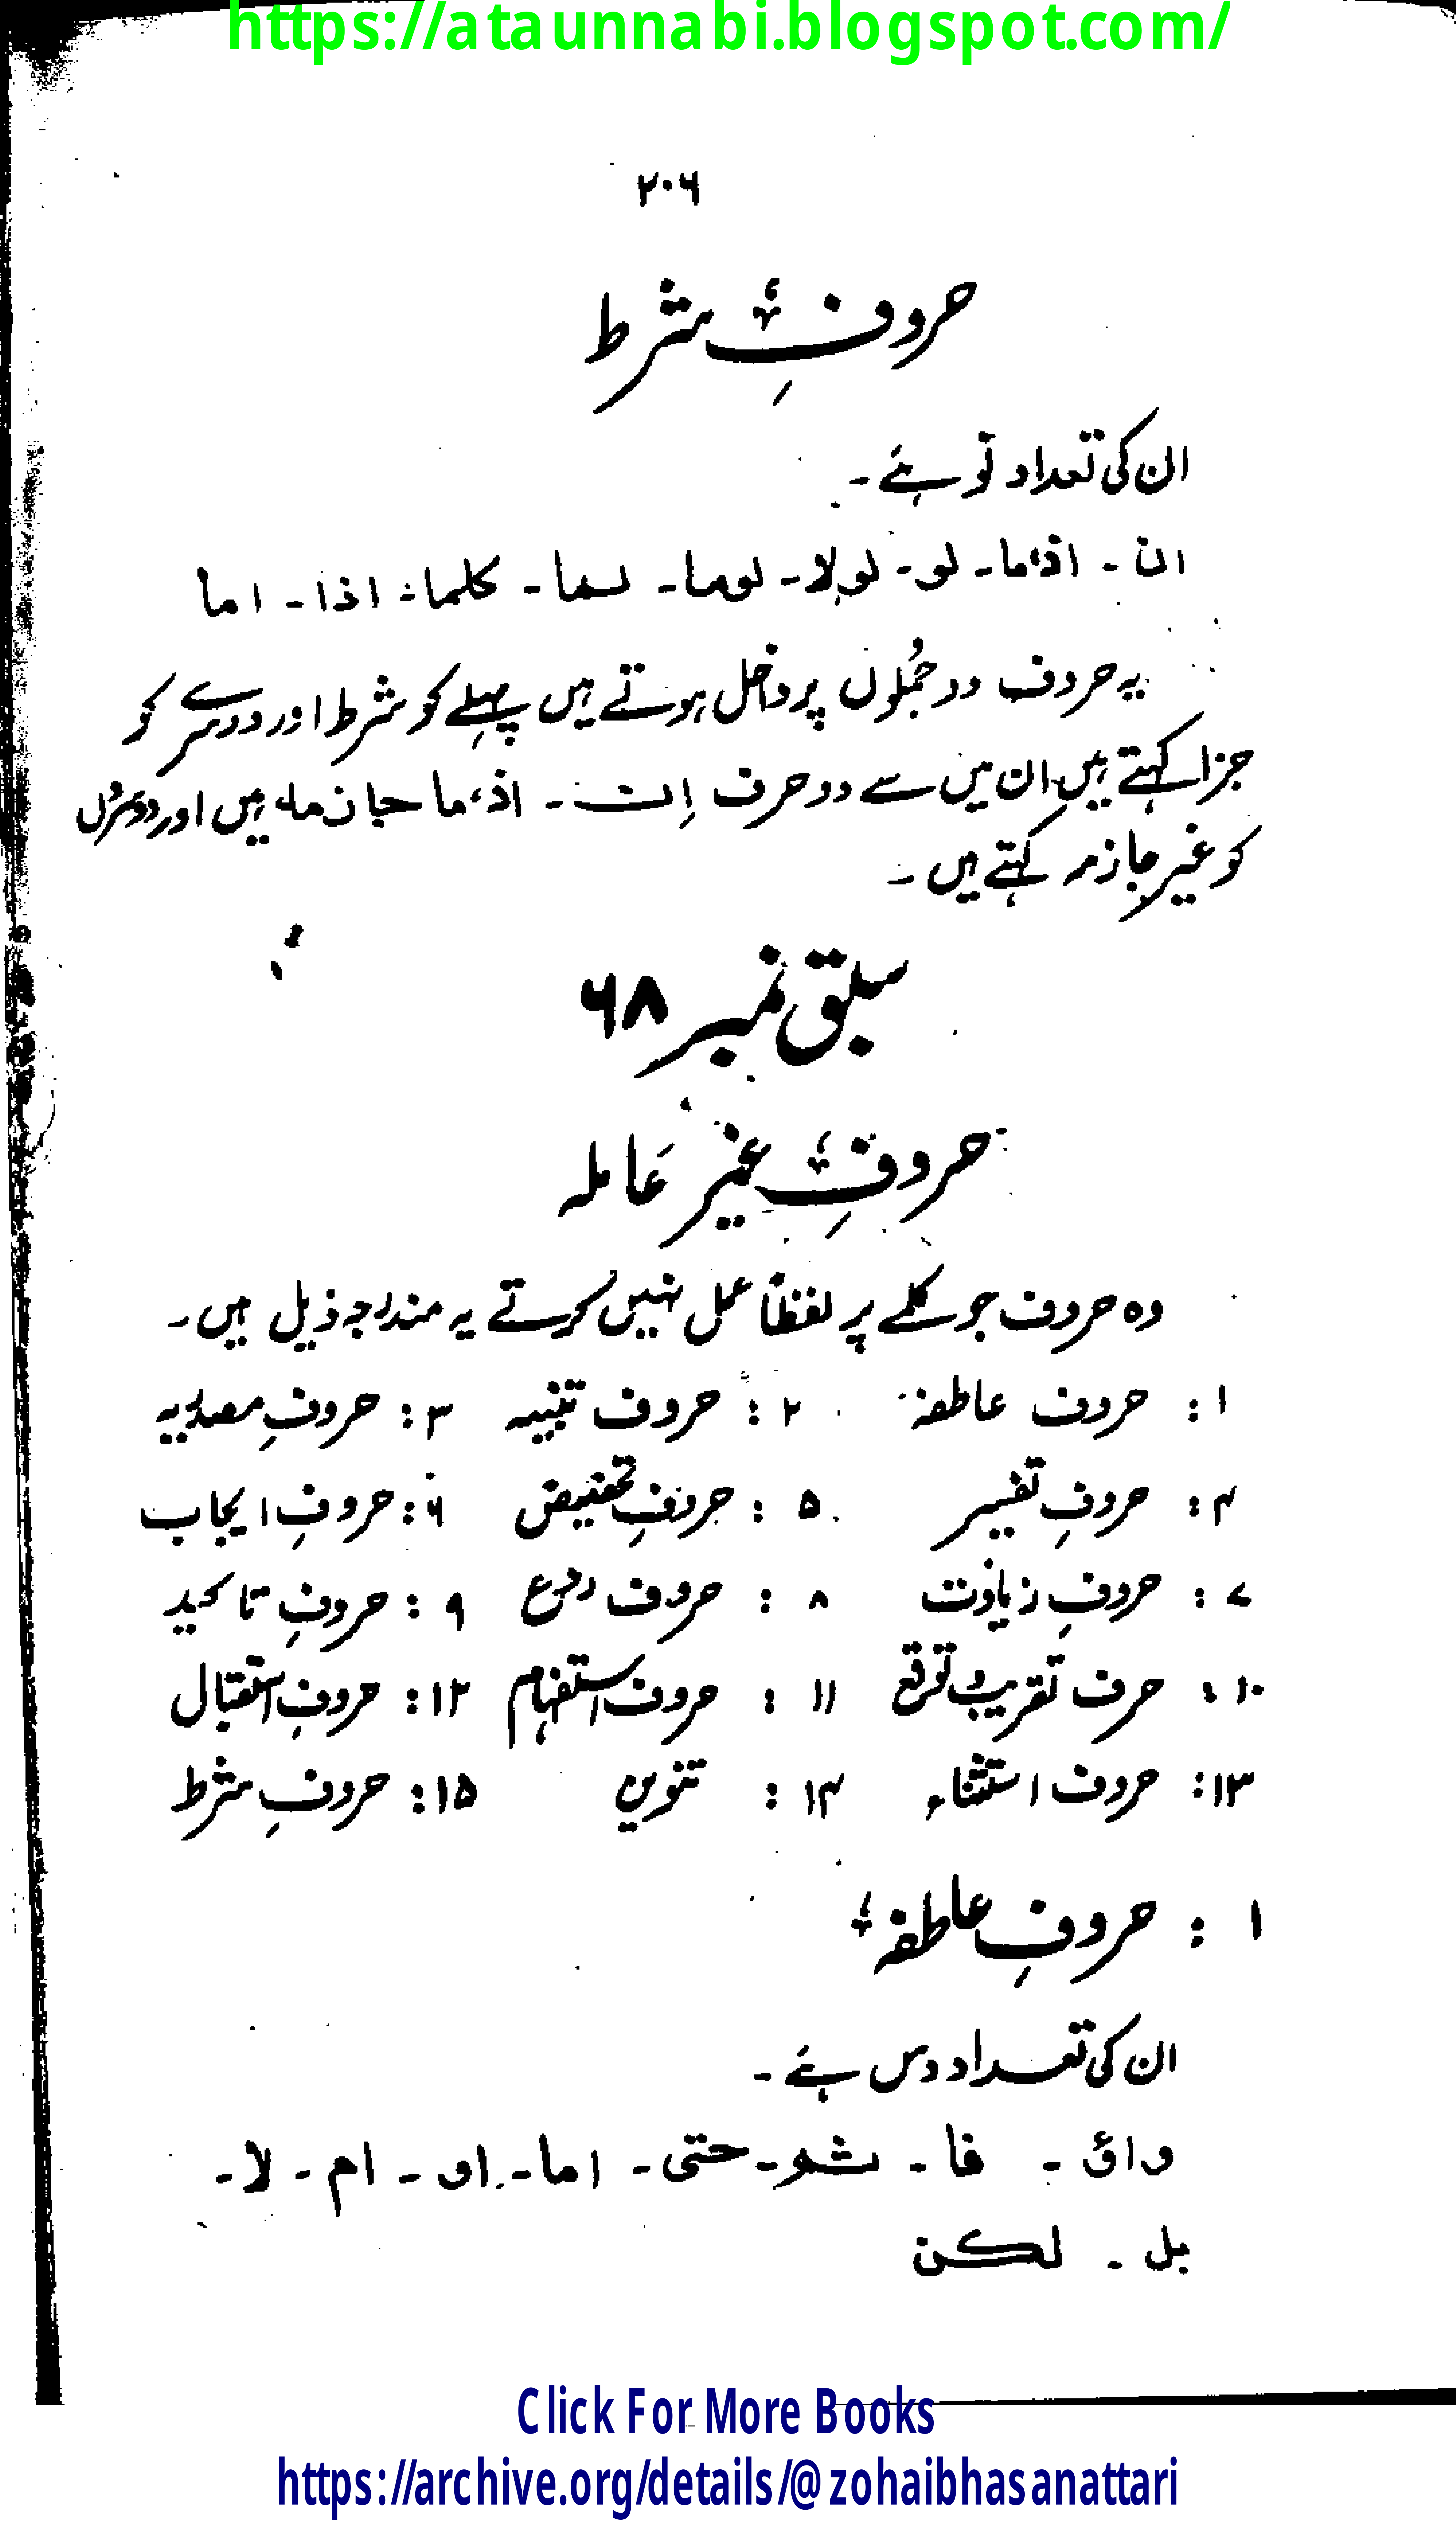 https://ataunnabi.blogspot.com/
۲۰۶
حروفِ شرط
ان کی تعداد نو ہے۔
ان ۔ اذما۔ لو۔ لولا۔ لوما۔ لما۔ کلما۔ اذا۔ اما
یہ حروف دو جُملوں پر داخل ہوتے ہیں پہلے کو شرط اور دوسرے کو
جزا کہتے ہیں ان میں سے دو حرف اِن ۔ اذما جازمہ ہیں اور دوسروں
کو غیر جازمہ کہتے ہیں ۔
سبق نمبر ۶۸
حروفِ غیر عَاملہ
وہ حروف جو کلمے پر لفظاً عمل نہیں کرتے یہ مندرجہ ذیل ہیں۔
۱ : حروف عاطفہ ۲ : حروف تنبیہ ۳ : حروفِ مصدریہ
۴ : حروفِ تفسیر ۵ : حروفِ تحضیض ۶ : حروفِ ایجاب
۷ : حروفِ زیادت ۸ : حروف ردع ۹ : حروفِ تاکید
۱۰ : حرف تقریب و توقع ۱۱ : حروف استفہام ۱۲ : حروفِ استقبال
۱۳ : حروف استثناء ۱۴ : تنوین ۱۵ : حروفِ شرط
۱ : حروفِ عاطفہ
ان کی تعداد دس ہے ۔
واؤ ۔ فا ۔ ثم ۔ حتی ۔ اما ۔ او ۔ ام ۔ لا ۔
بل ۔ لکن
Click For More Books
https://archive.org/details/@zohaibhasanattari